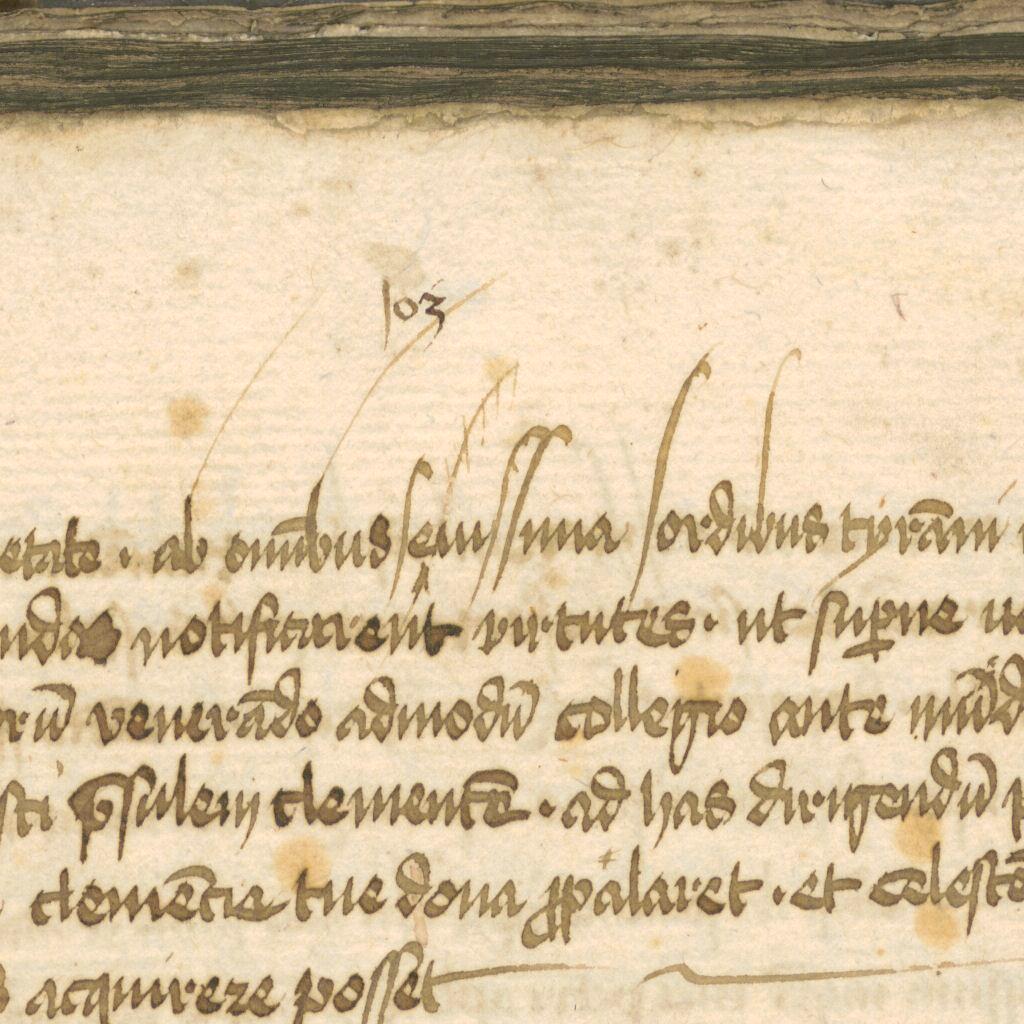 103
etate · ab oīnibus seuissima sordibus tyrāni
notificarent virtutes · ut supne
rū venerādo admodū collegio ante mūd
sti p̄sulem clementē · ad has dirigendū
clemētie tue dona ꝓpalaret · et celestē
acquirere posset